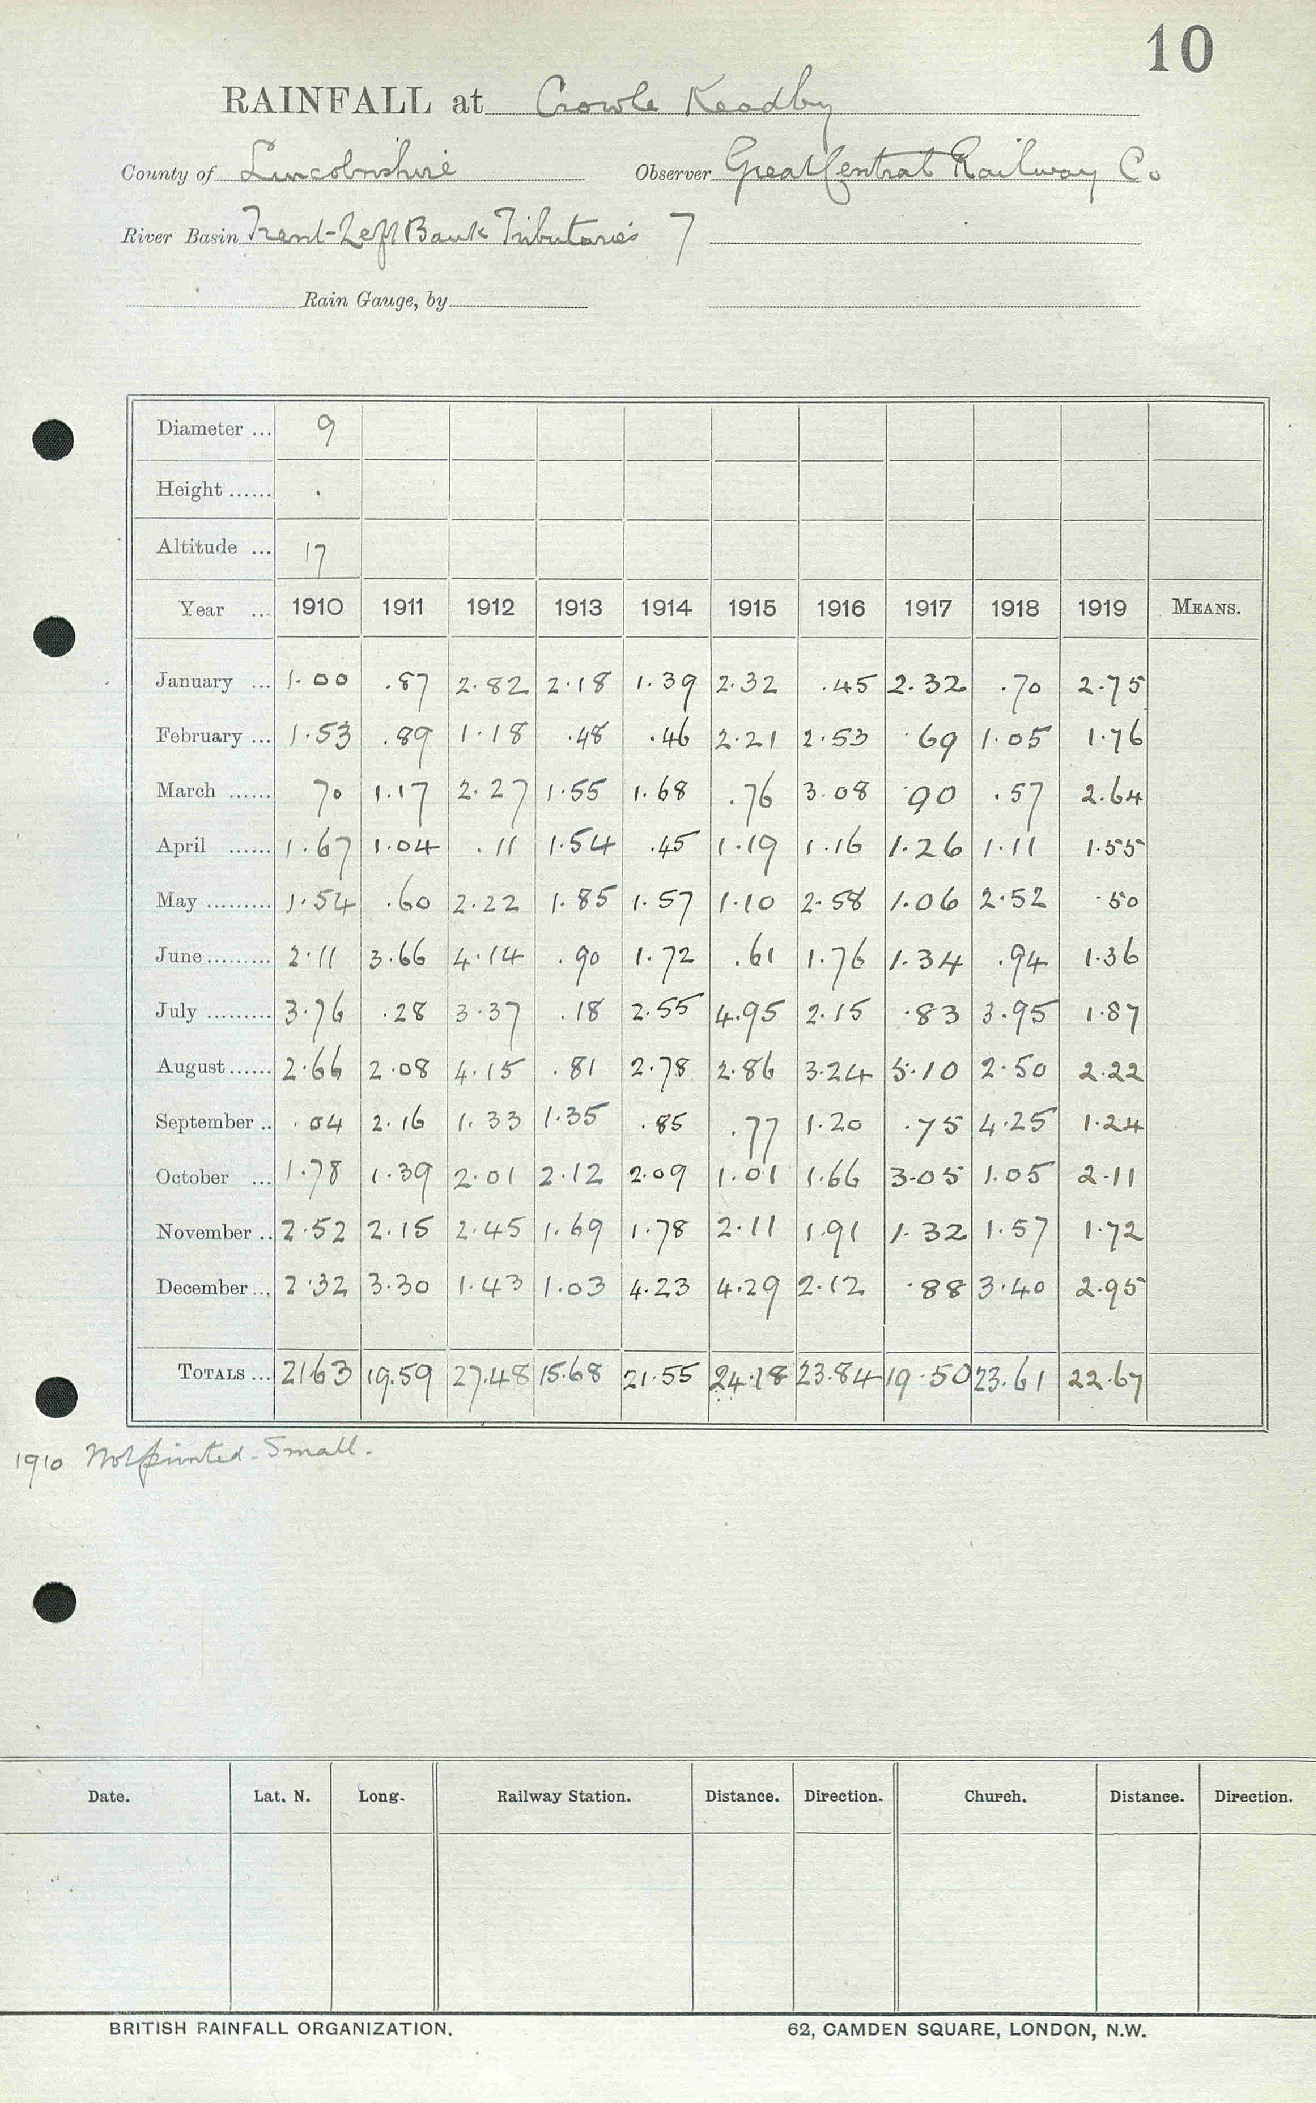 10
RAINFALL at Crowle Keadby
County of Lincolnshire Observer Great Central Railway Co
River Basin Trent-Left Bank Tributaries 7
Rain Gauge, by
Diameter ... 9
Height ...... .
Altitude ... 17
Year ... 1910 1911 1912 1913 1914 1915 1916 1917 1918 1919 MEANS.
January ... 1.00 .87 2.82 2.18 1.39 2.32 .45 2.32 .70 2.75
February ... 1.53 .89 1.18 .48 .46 2.21 2.53 .69 1.05 1.76
March ...... 70 1.17 2.27 1.55 1.68 .76 3.08 .90 .57 2.64
April ...... 1.67 1.04 .11 1.54 .45 1.19 1.16 1.26 1.11 1.55
May ......... 1.54 .60 2.22 1.85 1.57 1.10 2.58 1.06 2.52 .50
June ......... 2.11 3.66 4.14 .90 1.72 .61 1.76 1.34 .94 1.36
July ......... 3.76 .28 3.37 .18 2.55 4.95 2.15 .83 3.95 1.87
August ...... 2.66 2.08 4.15 .81 2.78 2.86 3.24 5.10 2.50 2.22
September .. .04 2.16 1.33 1.35 .85 .77 1.20 .75 4.25 1.24
October ... 1.78 1.39 2.01 2.12 2.09 1.01 1.66 3.05 1.05 2.11
November .. 2.52 2.15 2.45 1.69 1.78 2.11 1.91 1.32 1.57 1.72
December ... 2.32 3.30 1.43 1.03 4.23 4.29 2.12 .88 3.40 2.95
TOTALS ... 21.63 19.59 27.48 15.68 21.55 24.18 23.84 19.50 23.61 22.67
1910 Not printed - Small.
Date. Lat. N. Long. Railway Station. Distance. Direction. Church. Distance. Direction.
BRITISH RAINFALL ORGANIZATION. 62, CAMDEN SQUARE, LONDON, N.W.